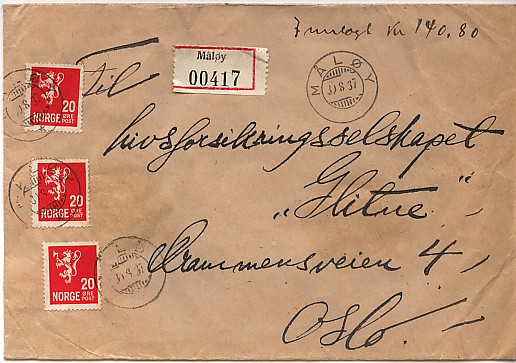 Innlagt kr 140.80
Til
Måløy
00417
MÅLØY
31 8 37
20
NORGE ØRE
POST
livsforsikringsselskapet
20
NORGE ØRE
POST
„Glitne"
20
NORGE ØRE
POST
Drammensveien 4,
Oslo.